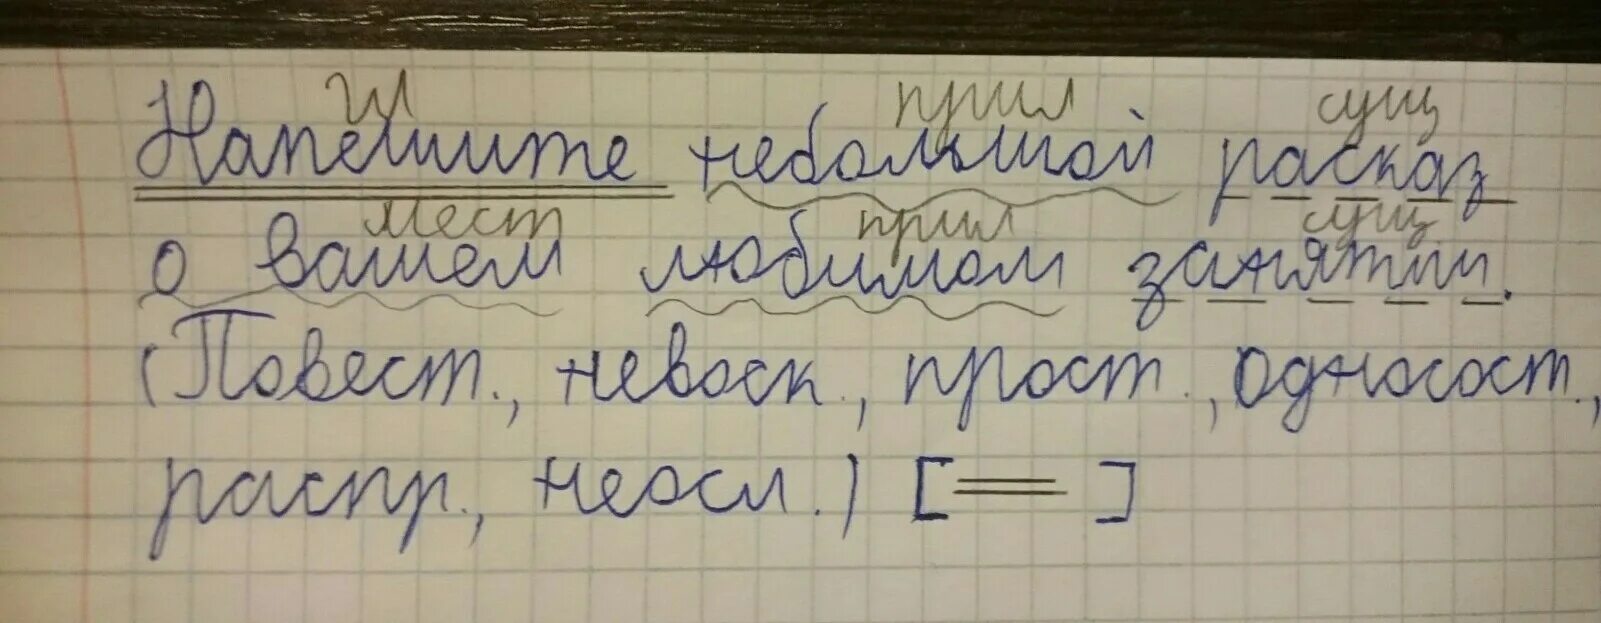 гл прил сущ
Напешите небольшой расказ
мест прил сущ
о вашем любимом занятии.
(Повест., невоск., прост., односост.,
распр., неосл.) [ ]